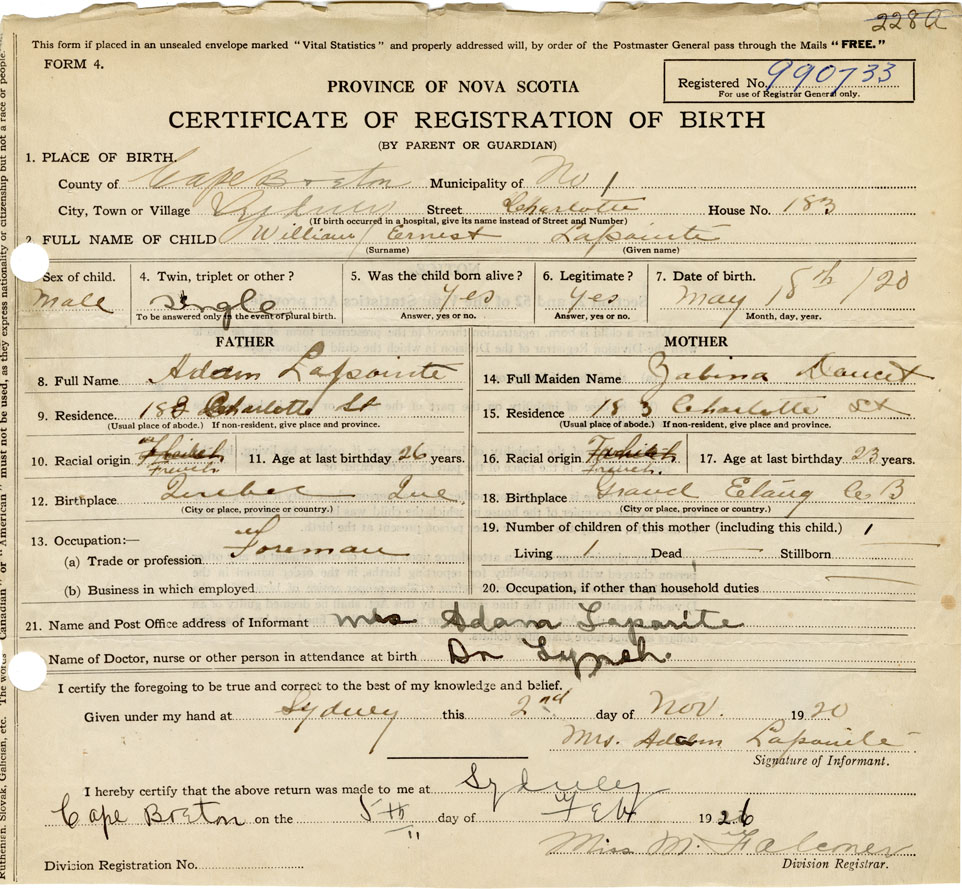 228A
This form if placed in an unsealed envelope marked "Vital Statistics" and properly addressed will, by order of the Postmaster General pass through the Mails "FREE."
FORM 4.
Registered No. 990733
For use of Registrar General only.
PROVINCE OF NOVA SCOTIA
CERTIFICATE OF REGISTRATION OF BIRTH
(BY PARENT OR GUARDIAN)
1. PLACE OF BIRTH.
County of Cape Breton Municipality of No 1
City, Town or Village Sydney Street Charlotte House No. 183
(If birth occurred in a hospital, give its name instead of Street and Number)
2. FULL NAME OF CHILD William Ernest Lapointe
(Surname) (Given name)
Sex of child. 4. Twin, triplet or other? 5. Was the child born alive? 6. Legitimate? 7. Date of birth.
Male Single Yes Yes May 18th/20
To be answered only in the event of plural birth. Answer, yes or no. Answer, yes or no. Month, day, year.
FATHER MOTHER
8. Full Name Adam Lapointe 14. Full Maiden Name Zabina Doucet
9. Residence. 183 Charlotte St 15. Residence 183 Charlotte St
(Usual place of abode.) If non-resident, give place and province. (Usual place of abode.) If non-resident, give place and province.
10. Racial origin French 11. Age at last birthday 26 years. 16. Racial origin French. 17. Age at last birthday 23 years.
12. Birthplace Quebec Que 18. Birthplace Grand Etang C B
(City or place, province or country.) (City or place, province or country.)
19. Number of children of this mother (including this child.) 1
13. Occupation:—
(a) Trade or profession Foreman Living 1 Dead — Stillborn —
(b) Business in which employed 20. Occupation, if other than household duties —
21. Name and Post Office address of Informant Mrs Adam Laponite
Name of Doctor, nurse or other person in attendance at birth Dr Lynch.
I certify the foregoing to be true and correct to the best of my knowledge and belief.
Given under my hand at Sydney this 2nd day of Nov. 1920
Mrs. Adam Lapointe
Signature of Informant.
I hereby certify that the above return was made to me at Sydney
Cape Breton on the 5th day of Feb 1926
Miss M. Falconer
Division Registration No. Division Registrar.
Ruthenian, Slovak, Galician, etc. The words "Canadian" or "American" must not be used, as they express nationality or citizenship but not a race or people.